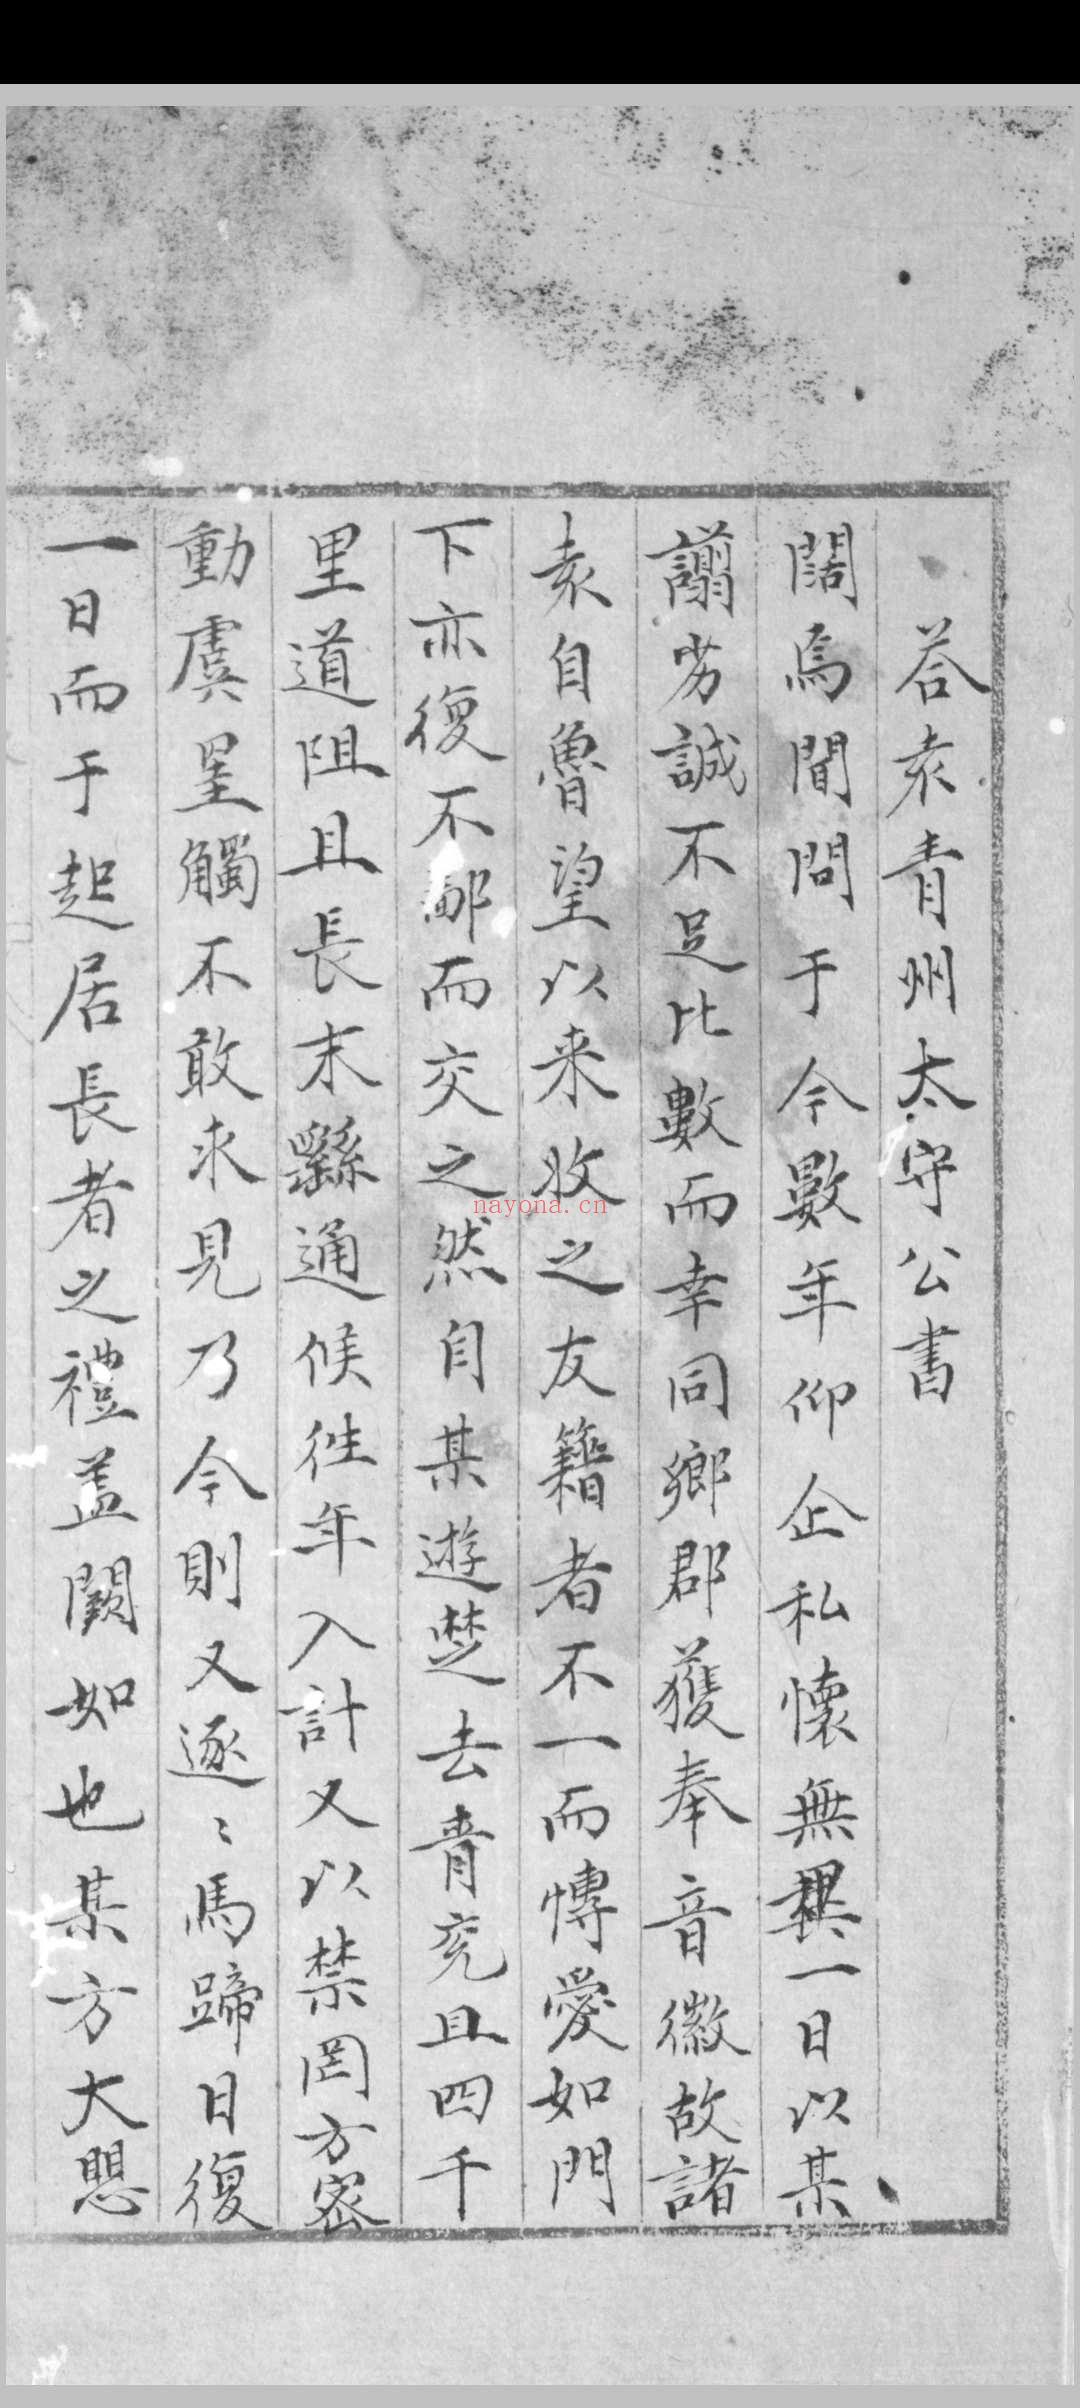 荅袁青州太守公書
闊焉聞問于今數年仰企私懷無異一日以某
謭劣誠不足比數而幸同鄉郡獲奉音徽故諸
袁自魯望以来收之友籍者不一而慱愛如門
下亦復不鄙而交之然自某遊楚去青兖且四千
里道阻且長末繇通候徃年入計又以禁罔方宻
動虞罣觸不敢求見乃今則又逐〻馬蹄日復
一日而于起居長者之禮盖闕如也某方大愳
nayona.cn